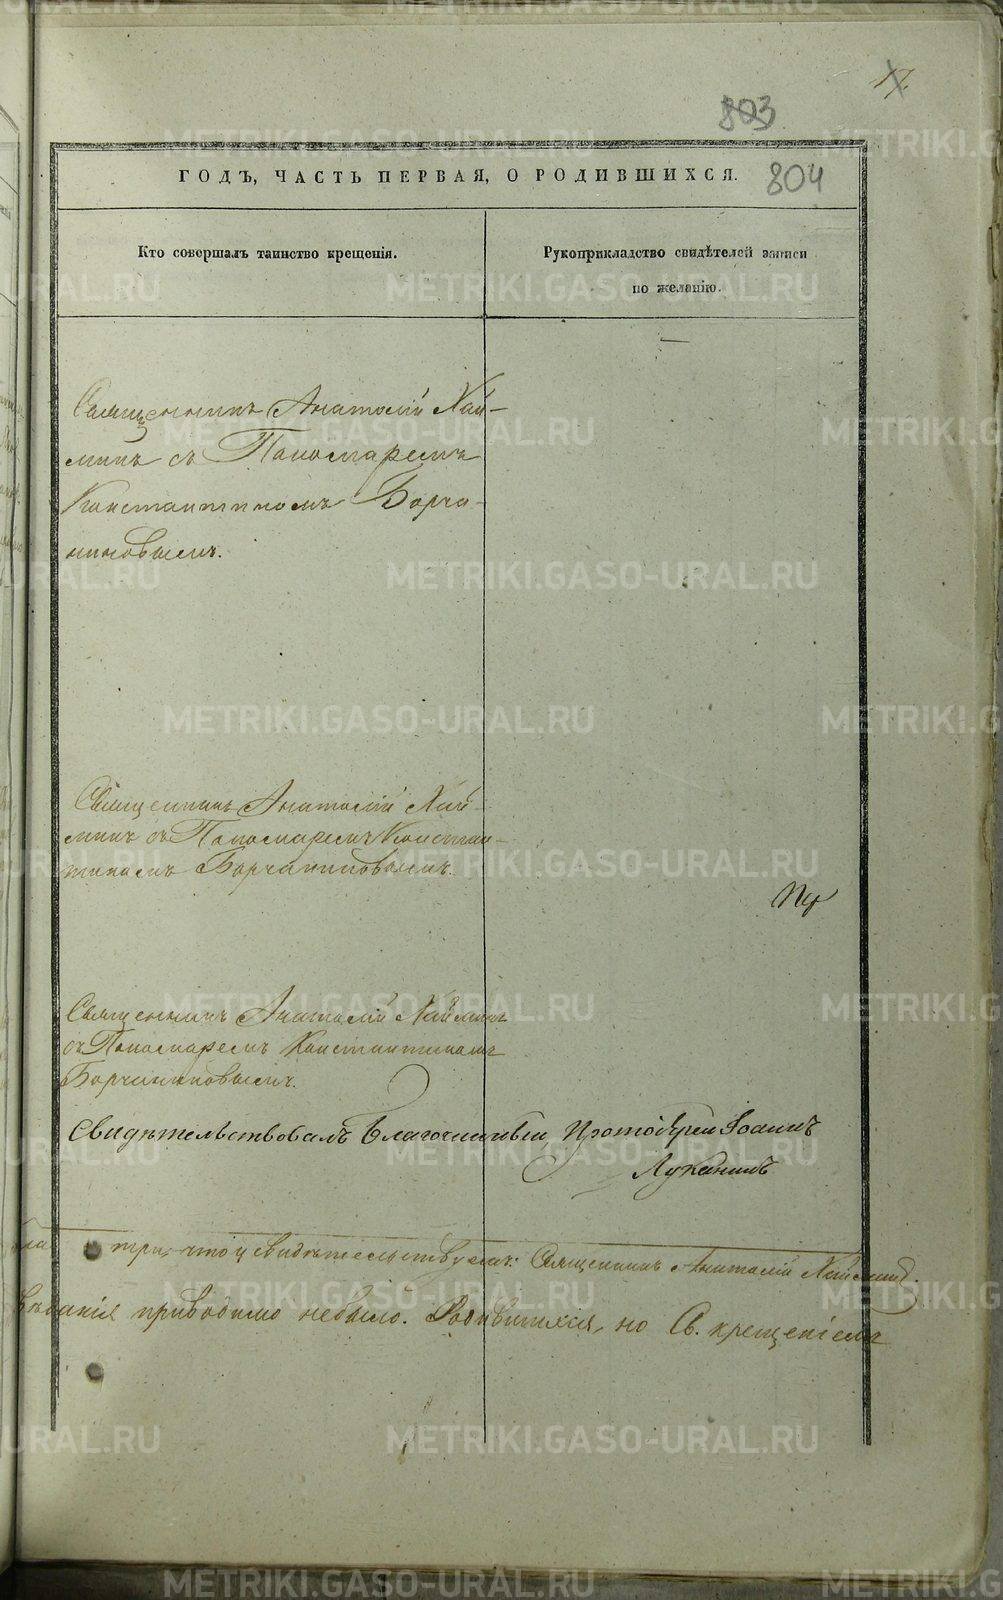 17
803
ГОДЪ, ЧАСТЬ ПЕРВАЯ, О РОДИВШИХСЯ.
804
Кто совершалъ таинство крещенія.
Рукоприкладство свидѣтелей записи
по желанію.
Священникъ Анатолій Хай-
минъ съ Пономаремъ
Константиномъ Борча-
ниновымъ.
Священникъ Анатолій Хай-
минъ съ Пономаремъ Констан-
тиномъ Борчаниновымъ.
Священникъ Анатолій Хайминъ
съ Пономаремъ Константиномъ
Борчаниновымъ.
Свидѣтельствовалъ Благочинный Протоіерей Іоаннъ
Луканинъ
три, что и свидѣтельствуемъ: Священникъ Анатолій Хайминъ.
приводимо небыло. Родившихся, но Св. крещеніемъ
METRIKI.GASO-URAL.RU